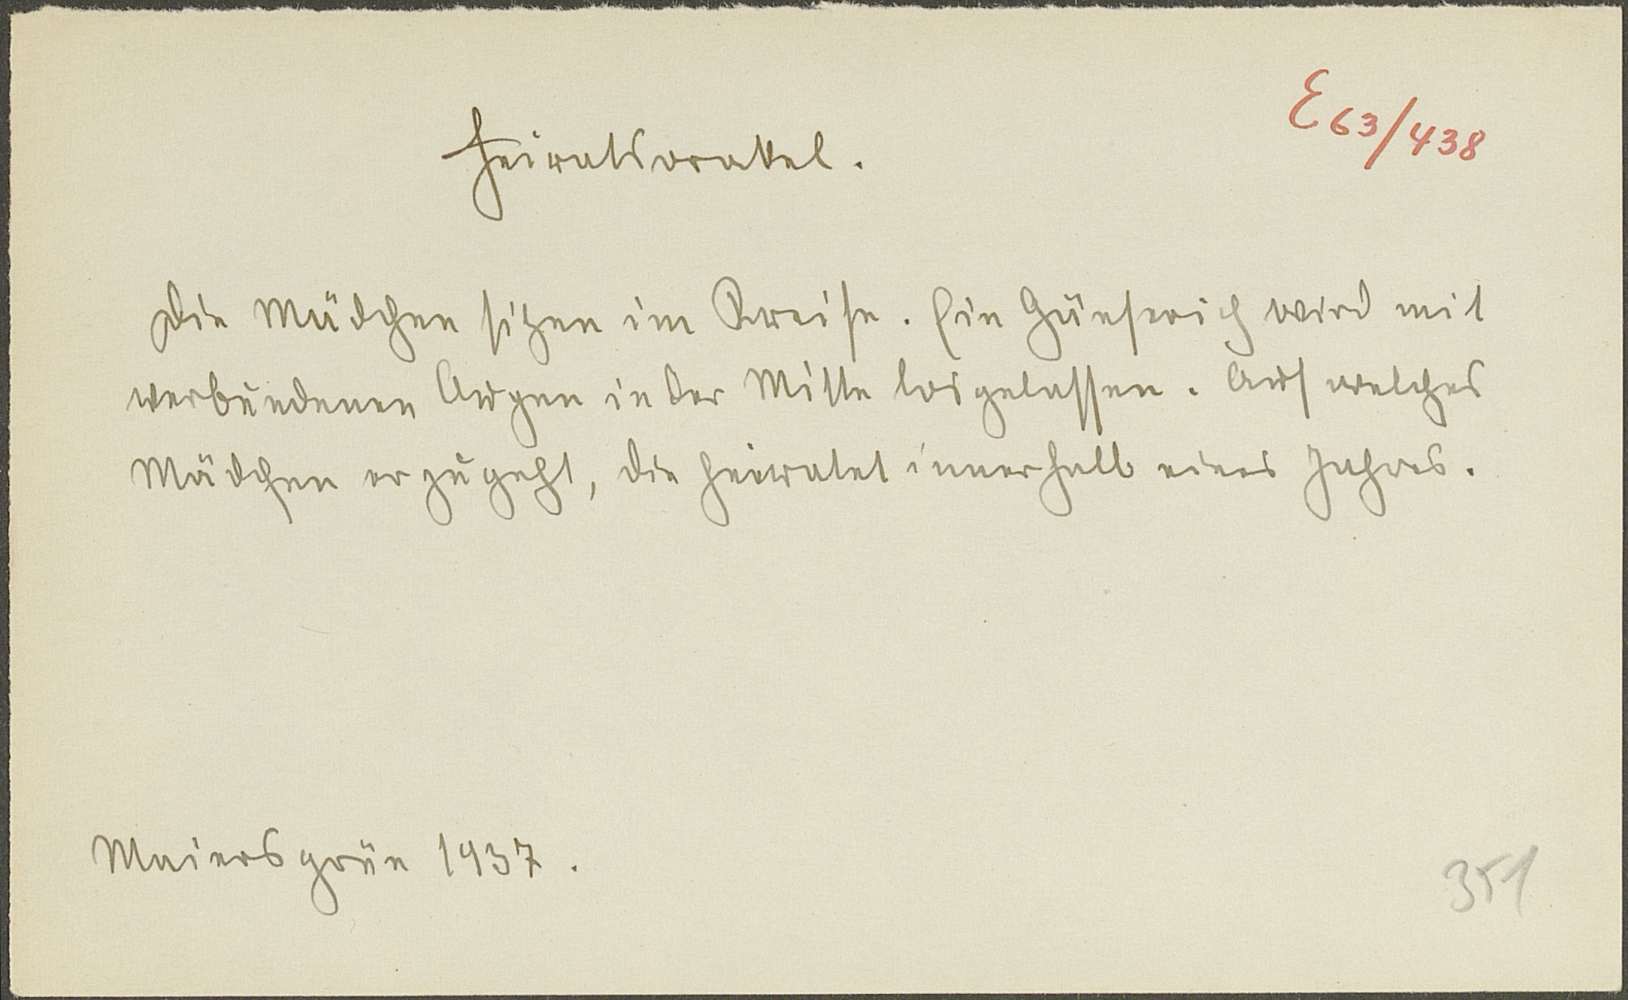 E 63/438
Heiratsorakel.
Die Mädchen sitzen im Kreise. Ein Gänserich wird mit
verbundenen Augen in der Mitte losgelassen. Auf welches
Mädchen er zugeht, die heiratet innerhalb eines Jahres.
Maiersgrün 1937.
351